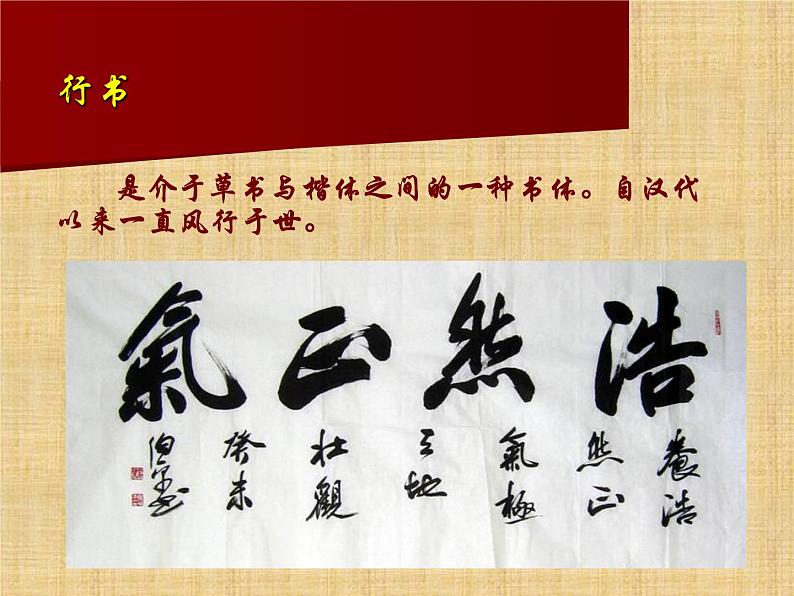 行书
是介于草书与楷体之间的一种书体。自汉代
以来一直风行于世。
浩然正氣
養浩
然正
氣極
天地
壯觀
癸未